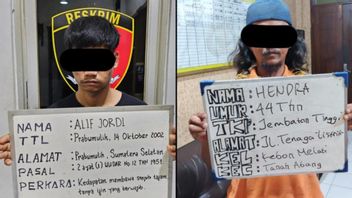 RESKRIM
NAMA : ALIF JORDI
TTL : Prabumulih, 14 Oktober 2002
ALAMAT : Prabumulih, Sumatera Selatan
PASAL : 2 ayat (1) UUDAR No 12 THN 1951
PERKARA : Kedapatan membawa senjata tajam
tanpa ijin yang berwajib.
NAMA : HENDRA
UMUR : 44 Thn
TKP : Jembatan Tinggi
ALAMAT : Jl. Tenaga Listrik
KEL : Kebon Melati
KEC : Tanah Abang